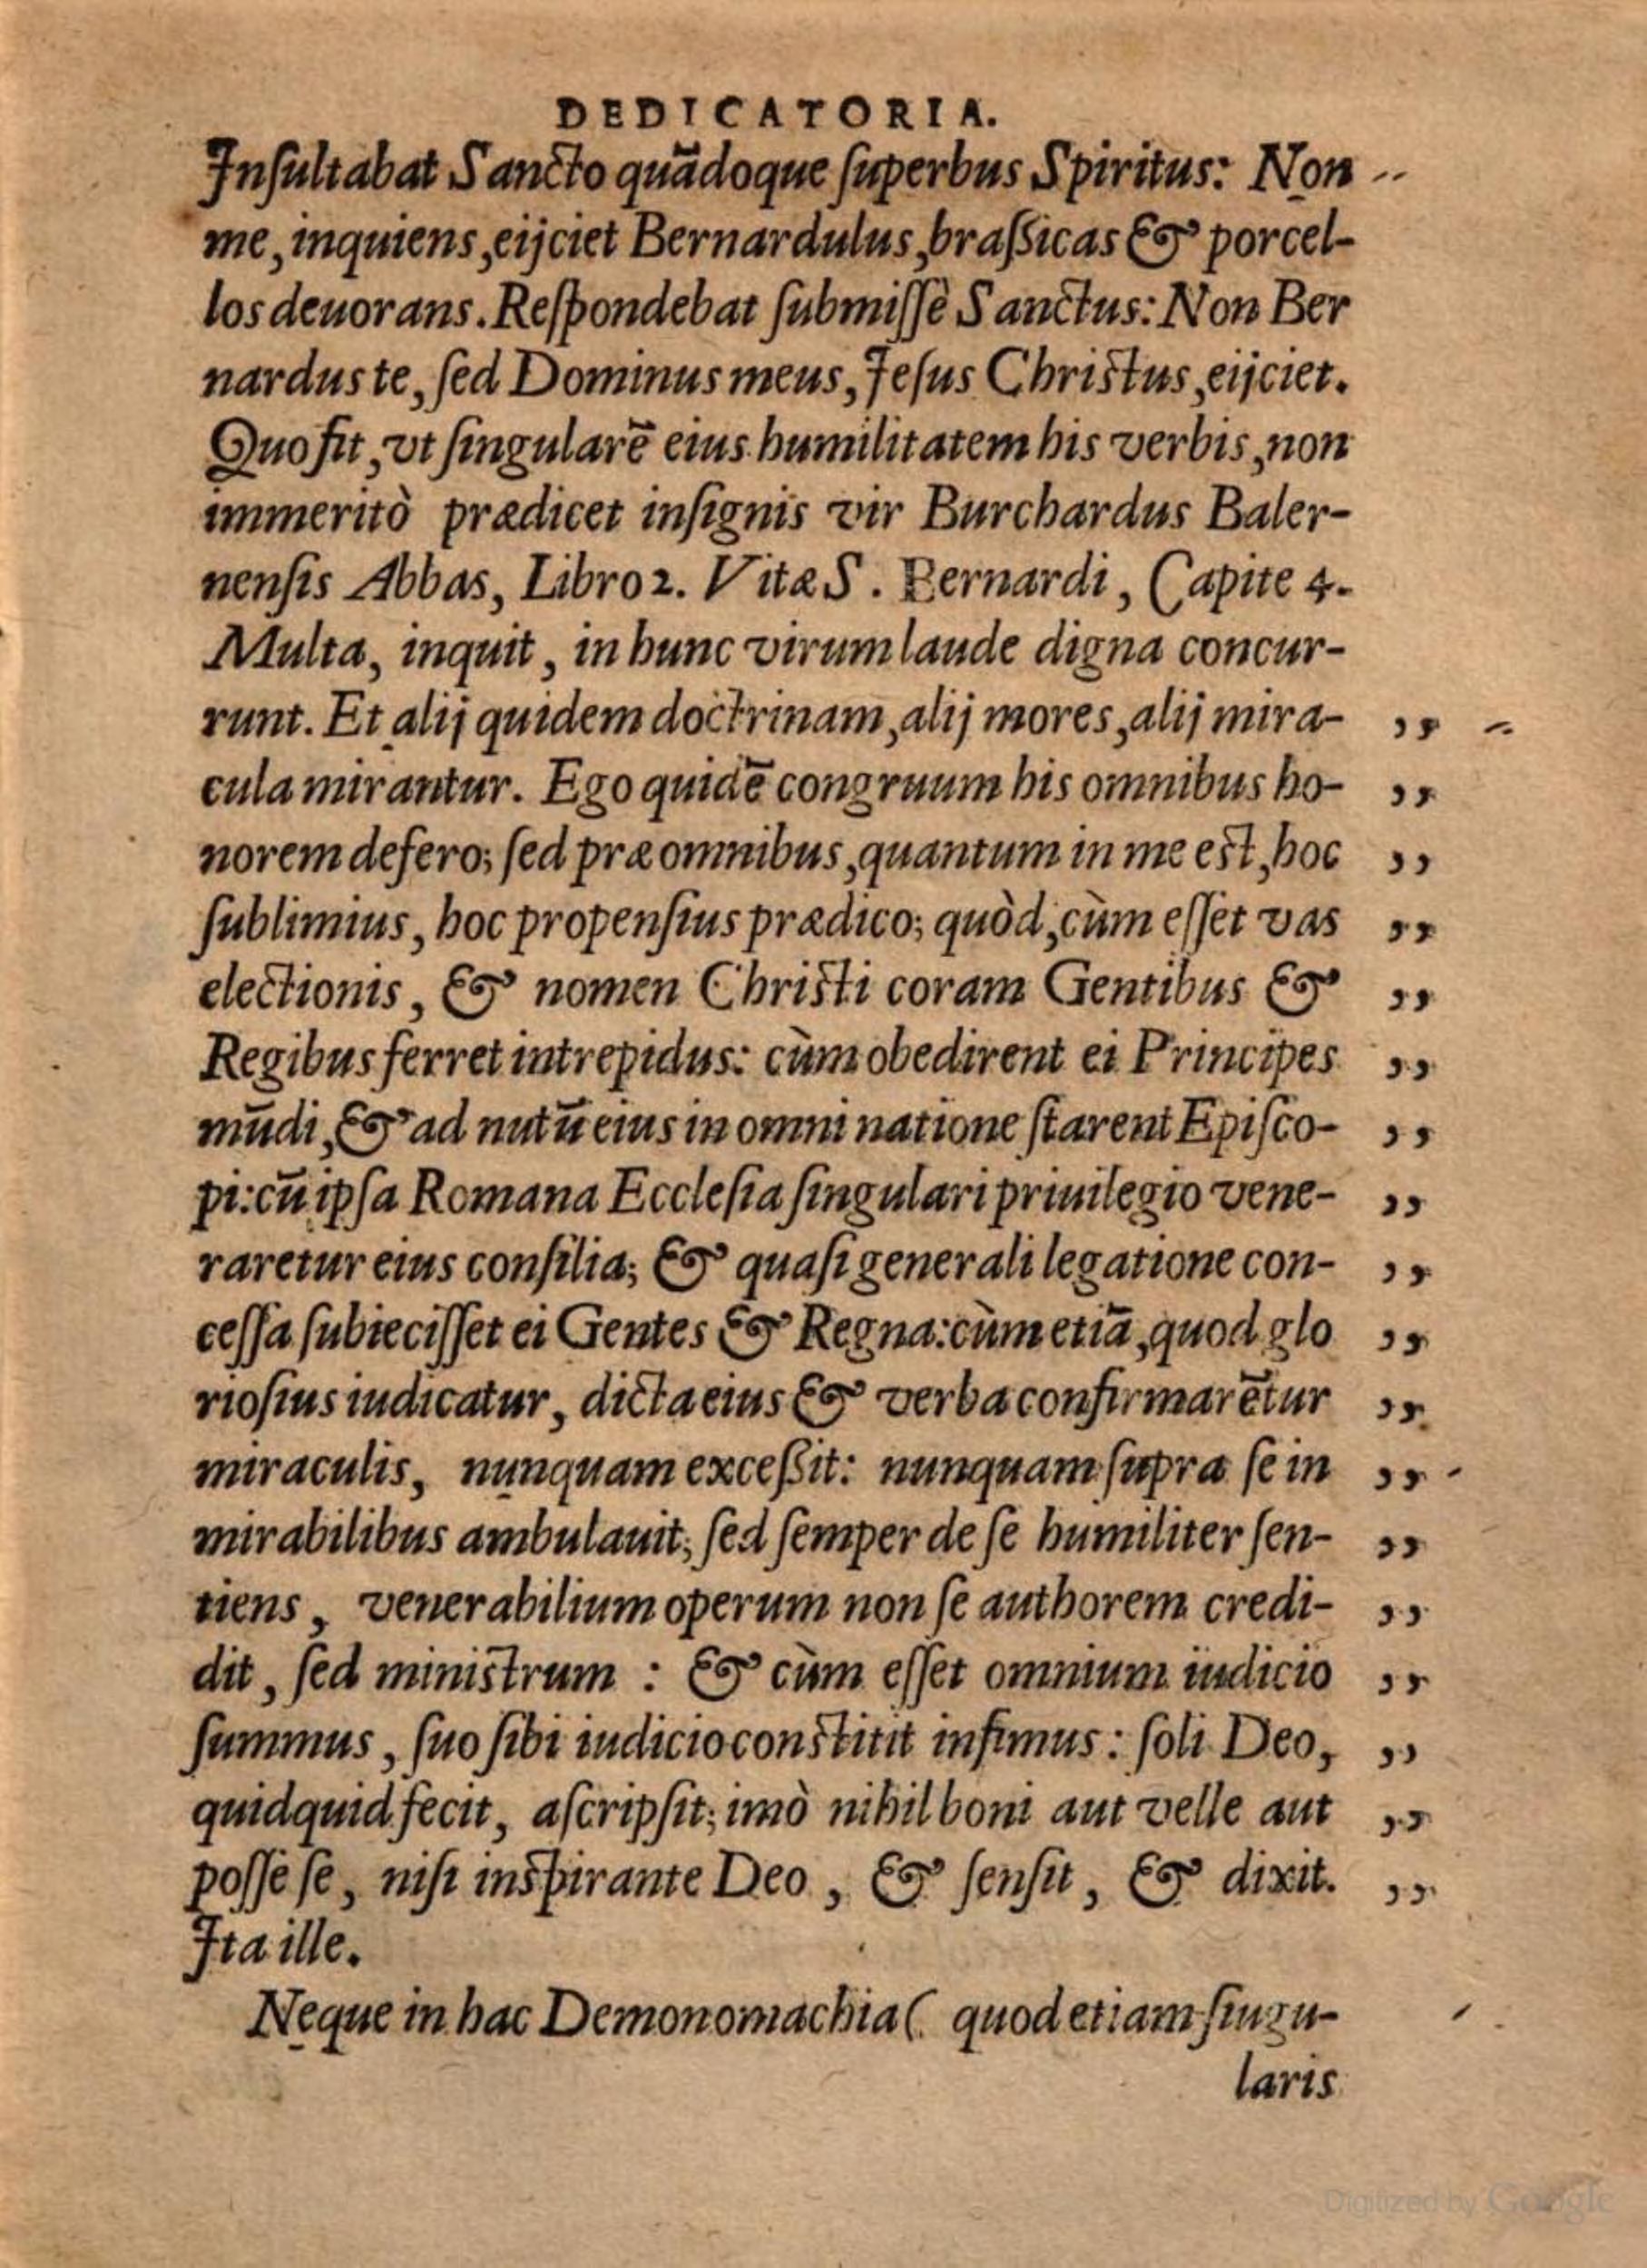 DEDICATORIA.
Inſultabat Sancto quãdoque ſuperbus Spiritus: Non
me, inquiens, eijciet Bernardulus, braſsicas & porcel-
los deuorans. Reſpondebat ſubmiſſè Sanctus: Non Ber
nardus te, ſed Dominus meus, Jeſus Chriſtus, eijciet.
Quo fit, vt ſingularẽ eius humilitatem his verbis, non
immeritò prædicet inſignis vir Burchardus Baler-
nenſis Abbas, Libro 2. Vitæ S. Bernardi, Capite 4.
Multa, inquit, in hunc virum laude digna concur-
runt. Et alij quidem doctrinam, alij mores, alij mira- ,,
cula mirantur. Ego quidẽ congruum his omnibus ho- ,,
norem defero; ſed præ omnibus, quantum in me eſt, hoc ,,
ſublimius, hoc propenſius prædico; quòd, cùm eſſet vas ,,
electionis, & nomen Chriſti coram Gentibus & ,,
Regibus ferret intrepidus: cùm obedirent ei Principes ,,
mũdi, & ad nutũ eius in omni natione ſtarent Epiſco- ,,
pi: cũ ipſa Romana Eccleſia ſingulari priuilegio vene- ,,
raretur eius conſilia; & quaſi generali legatione con- ,,
ceſſa ſubieciſſet ei Gentes & Regna: cùm etiã, quod glo ,,
rioſius iudicatur, dicta eius & verba confirmarẽtur ,,
miraculis, nunquam exceſsit: nunquam ſupra ſe in ,,
mirabilibus ambulauit; ſed ſemper de ſe humiliter ſen- ,,
tiens, venerabilium operum non ſe authorem credi- ,,
dit, ſed miniſtrum : & cùm eſſet omnium iudicio ,,
ſummus, ſuo ſibi iudicio conſtitit infimus: ſoli Deo, ,,
quidquid fecit, aſcripſit; imò nihil boni aut velle aut ,,
poſſe ſe, niſi inſpirante Deo, & ſenſit, & dixit. ,,
Jta ille.
Neque in hac Demonomachia ( quod etiam ſingu-
laris
Digitized by Google